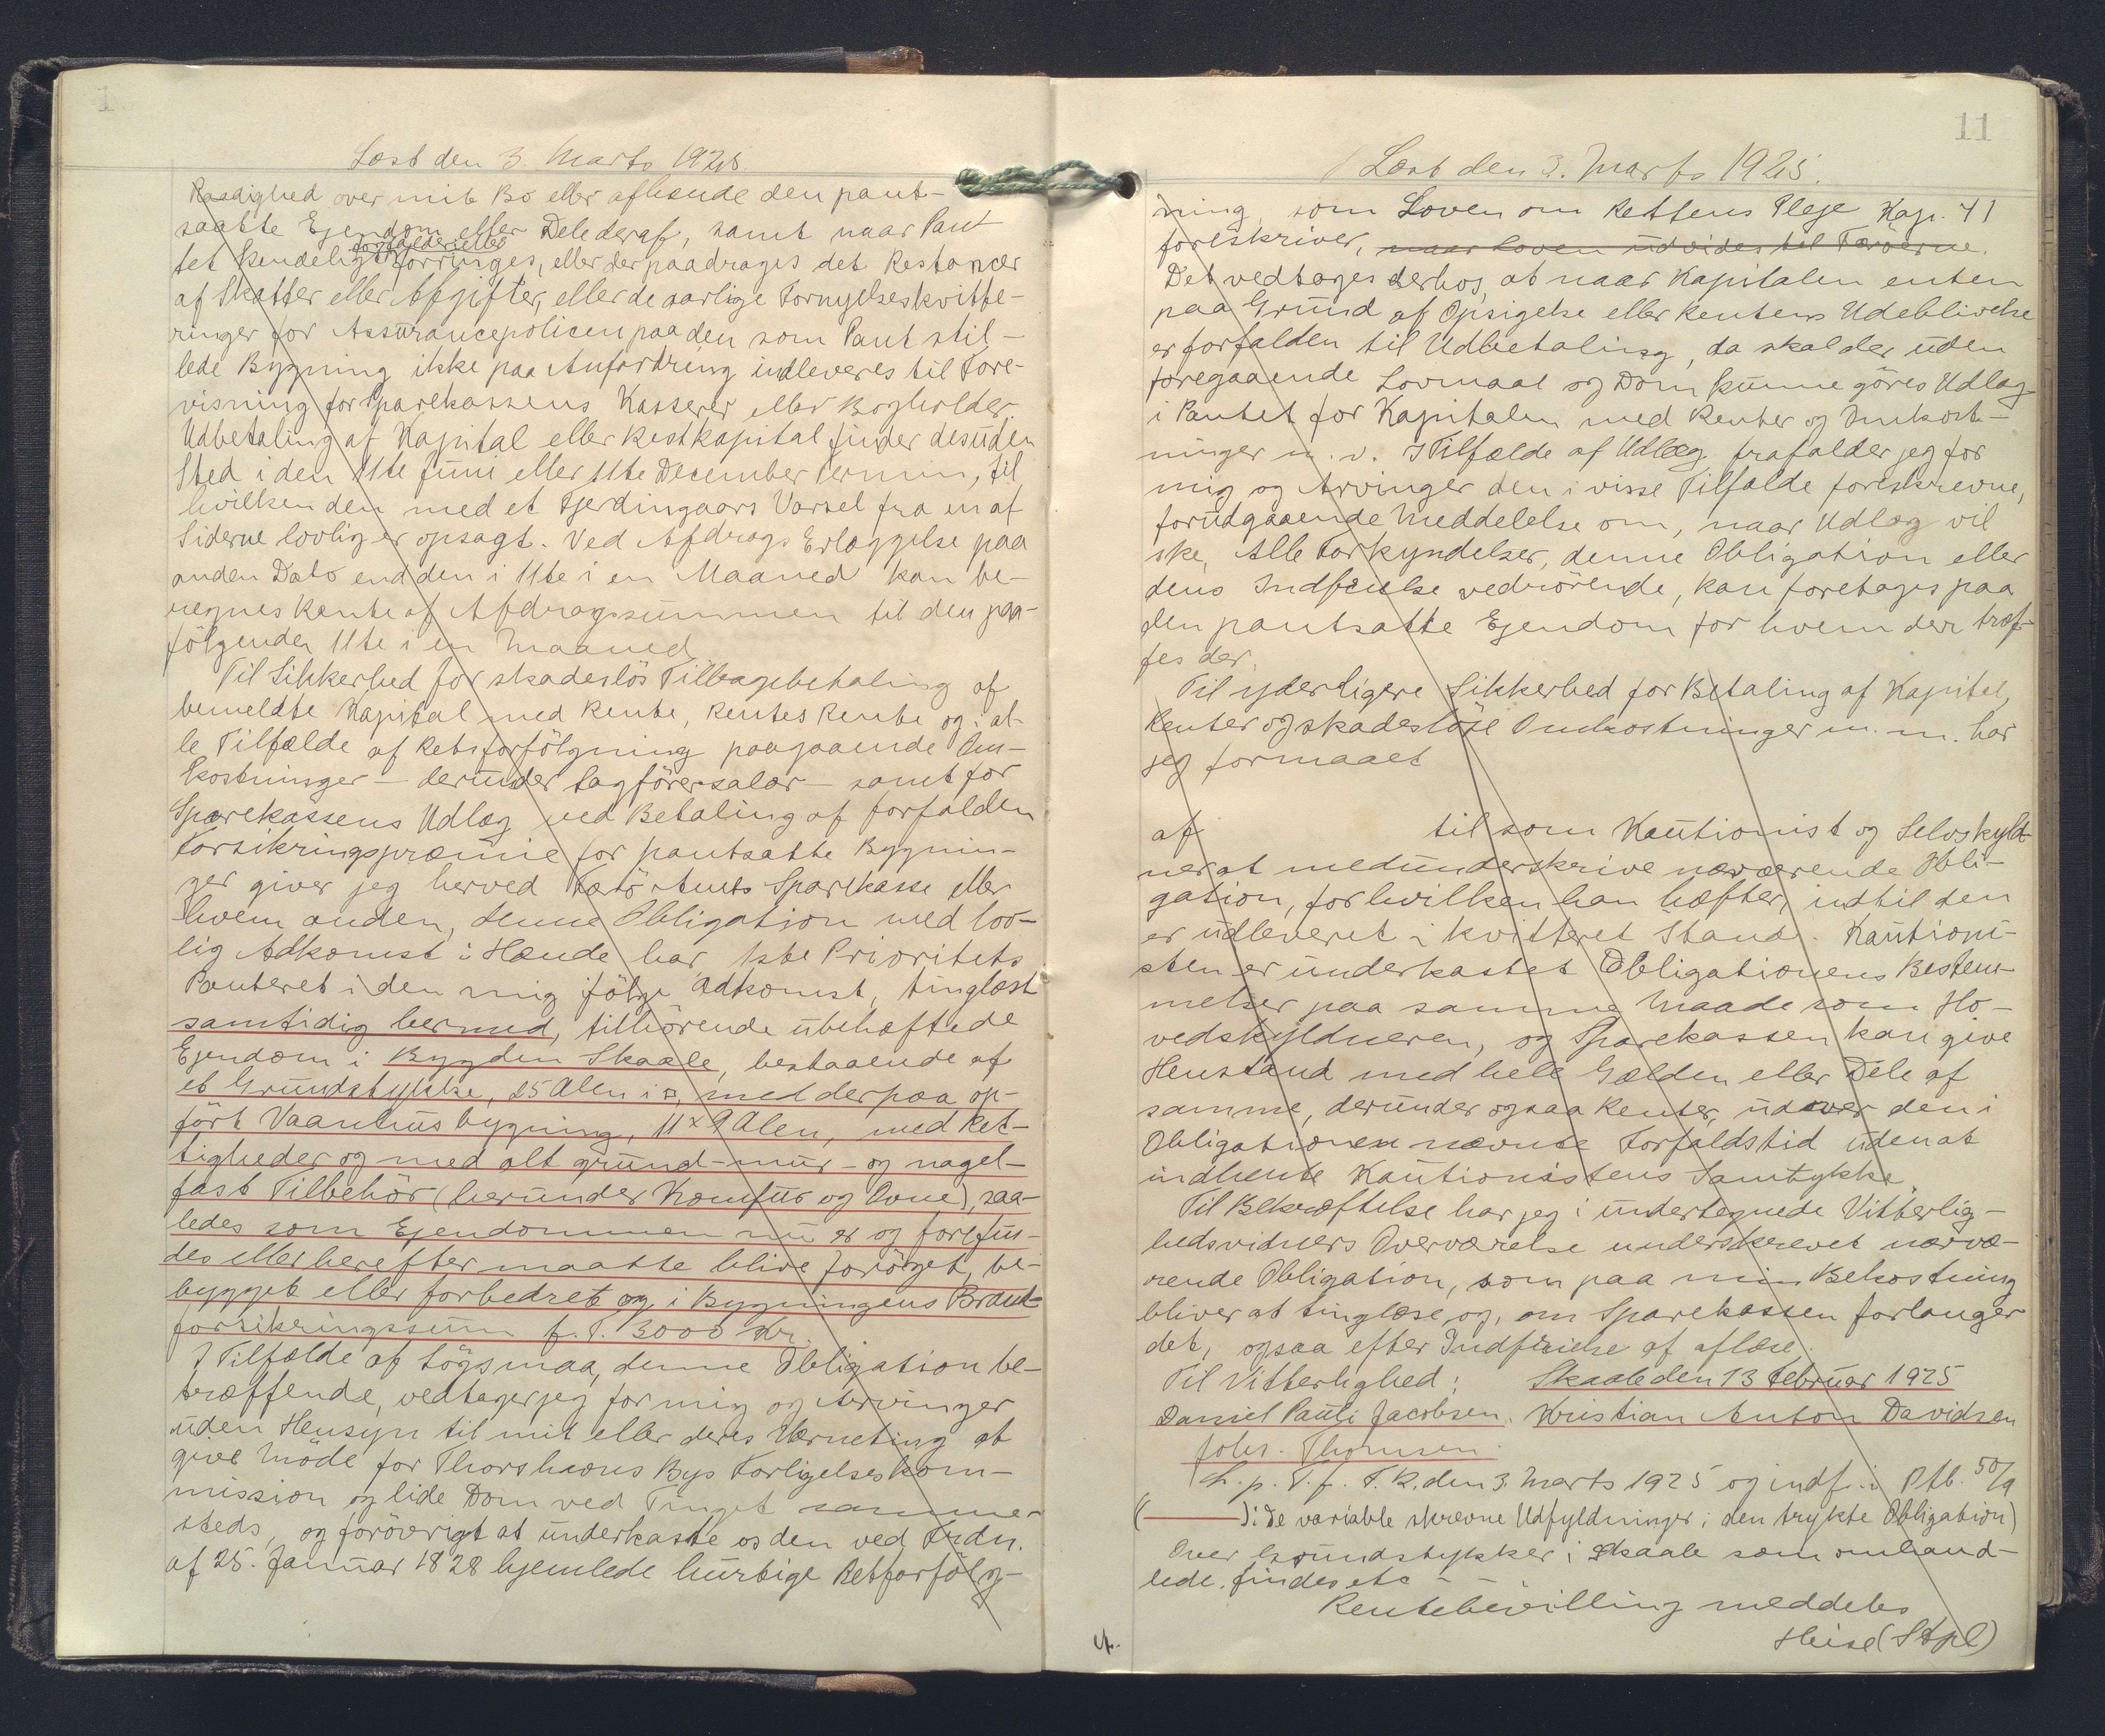 1
Læst den 3. Marts 1925.
Raadighed over mit Bo eller afhænde den pant-
satte Ejendom eller Dele deraf, samt naar Pan-
tet kendeligt forfalder eller forringes, eller der paadrages det Restancer
af Skatter eller Afgifter, eller de aarlige Fornyelseskvitte-
ringer for Assurancepolicen paa den som Pant stil-
lede Bygning ikke paa Anfordring indleveres til Fore-
visning for Sparekassens Kasserer eller Bogholder.
Udbetaling af Kapital eller Restkapital finder desuden
Sted i den 11te Juni eller 11te December Termin, til
hvilken den med et Fjerdingaars Varsel fra en af
Siderne lovlig er opsagt. Ved Afdrags Erlæggelse paa
anden Dato end den i 11te i en Maaned kan be-
regnes Rente af Afdragssummen til den paa-
følgende 11te i en Maaned
Til Sikkerhed for skadesløs Tilbagebetaling af
bemeldte Kapital med Rente, Rentes Rente og i al-
le Tilfælde af Retsforfølgning paagaaende Om-
kostninger – derunder Sagførersalær – samt for
Sparekassens Udlæg ved Betaling af forfalden
Forsikringspræmie for pantsatte Bygnin-
ger giver jeg herved Færø Amts Sparekasse eller
hvem anden, denne Obligation med lov-
lig Adkomst i Hænde har 1ste Prioritets
Panteret i den mig ifølge Adkomst, tinglæst
samtidig hermed, tilhørende ubehæftede
Ejendom i Bygden Skaale, bestaaende af
et Grundstykke, 25 Alen i □, med derpaa op-
ført Vaanhusbygning, 11 x 9 Alen, med Ret-
tigheder og med alt grund- mur- og nagel-
fast Tilbehør (herunder Komfur og Ovne), saa-
ledes som Ejendommen nu er og forefin-
des eller herefter maatte blive forøget, be-
bygget eller forbedret og i Bygningens Brand-
forsikringssum p.T. 3000 Kr.
I Tilfælde af Søgsmaa, denne Obligation be-
træffende, vedtager jeg for mig og Arvinger
uden Hensyn til mit eller deres Værneting at
give Møde for Thorshavns Bys Forligelseskom-
mission og lide Dom ved Tinget samme-
steds, og forøvrigt at underkaste os den ved Frdn.
af 25. Januar 1828 hjemlede hurtige Retforfølg-
11
Læst den 3. Marts 1925.
ning, som Loven om Rettens Pleje Kap. 41
foreskriver, naar Loven udvides til Færøerne.
Det vedtages derhos, at naar Kapitalen enten
paa Grund af Opsigelse eller Rentens Udeblivelse
er forfalden til Udbetaling, da skal der uden
foregaaende Lovmaal og Dom kunne gøres Udlæg
i Pantet for Kapitalen med Renter og Omkost-
ninger m.v. I Tilfælde af Udlæg frafalder jeg for
mig og Arvinger den i visse Tilfælde foreskrevne,
forudgaaende Meddelelse om, naar Udlæg vil
ske, Alle Forkyndelser, denne Obligation eller
dens Indfrielse vedrørende, kan foretages paa
den pantsatte Ejendom for hvem der træf-
fes der.
Til yderligere Sikkerhed for Betaling af Kapital,
Renter og skadesløse Omkostninger m.m. har
jeg formaaet
af til som Kautionist og Selvskyld-
ner at medunderskrive nærværende Obli-
gation, for hvilken han hæfter, indtil den
er udleveret i kvitteret Stand. Kautioni-
sten er underkastet Obligationens Bestem-
melser paa samme Maade som Ho-
vedskyldneren, og Sparekassen kan give
Henstand med hele Gælden eller Dele af
samme, derunder ogsaa Renter, udover den i
Obligationen nævnte Forfaldstid uden at
indhente Kautionistens Samtykke.
Til Bekræftelse har jeg i undertegnede Vitterlig-
hedsvidners Overværelse underskrevet nærvæ-
rende Obligation, som paa min Bekostning
bliver at tinglæse, og, om Sparekassen forlanger
det, ogsaa efter Indfrielse af aflæse.
Til Vitterlighed: Skaale den 13 Februar 1925
Daniel Pauli Jacobsen. Kristian Anton Davidsen
Johs. Thomsen.
L. p. T. f. T. R. den 3. Marts 1925 og indf. i Ptb. 50/9
(———): de variable skrevne Udfyldninger i den trykte Obligation)
Over Grundstykker i Skaale som omhand-
lede, findes etc – –
Rentebevilling meddeles
Heise (Stpl)